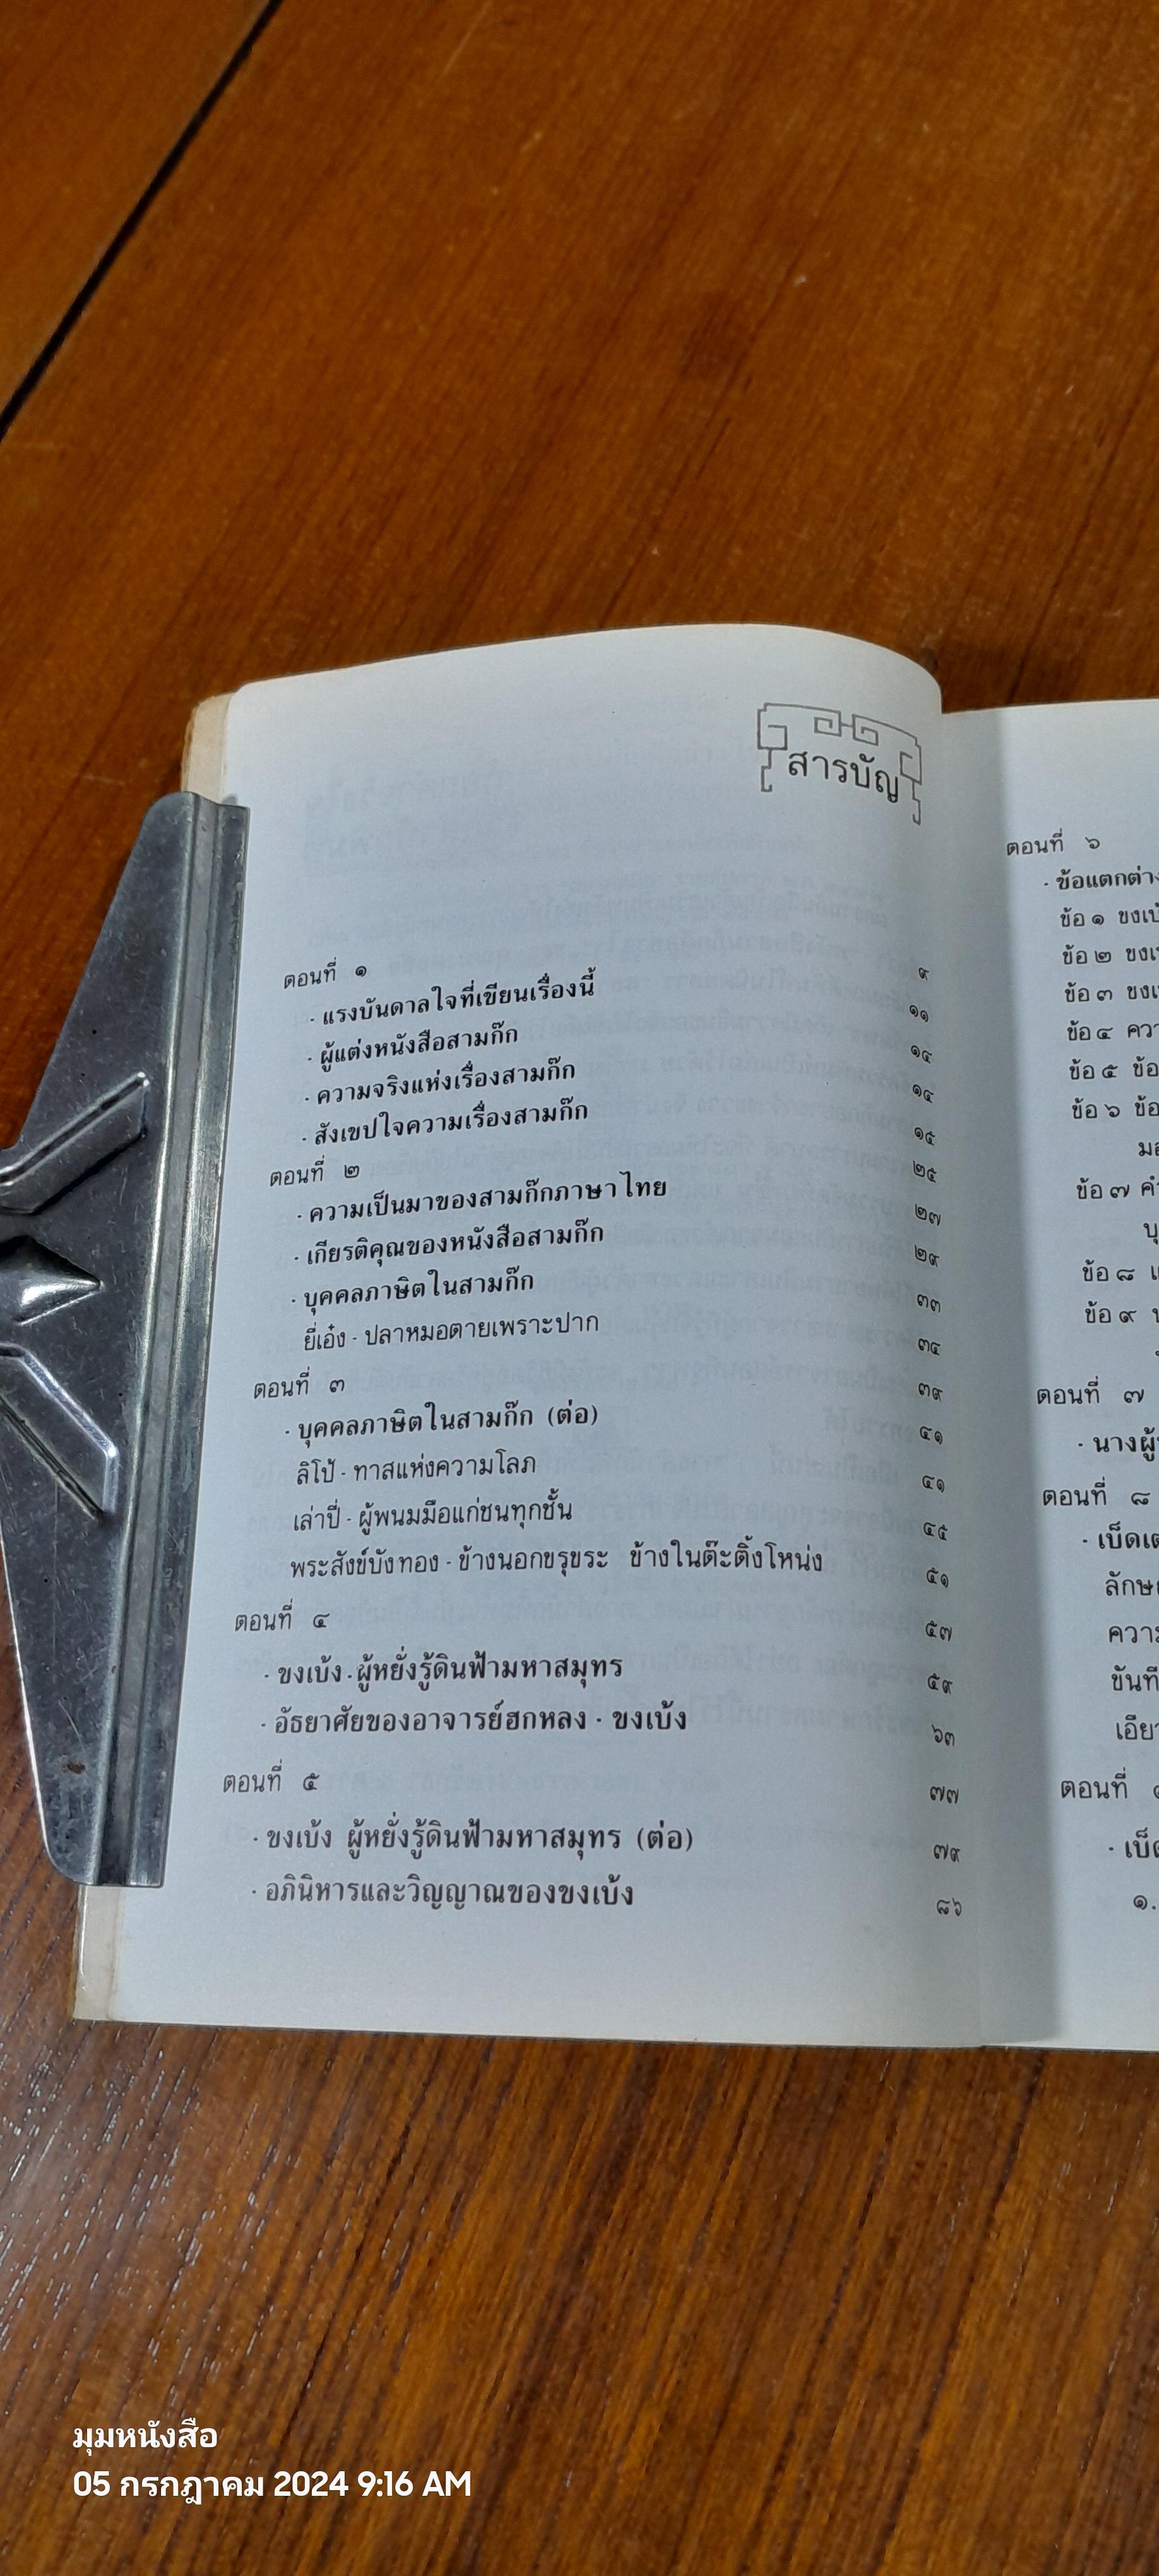 สารบัญ
ตอนที่ ๑ ๙
· แรงบันดาลใจที่เขียนเรื่องนี้ ๑๑
· ผู้แต่งหนังสือสามก๊ก ๑๔
· ความจริงแห่งเรื่องสามก๊ก ๑๔
· สังเขปใจความเรื่องสามก๊ก ๑๕
ตอนที่ ๒ ๒๕
· ความเป็นมาของสามก๊กภาษาไทย ๒๗
· เกียรติคุณของหนังสือสามก๊ก ๒๙
· บุคคลภาษิตในสามก๊ก ๓๓
ยี่เอ๋ง - ปลาหมอตายเพราะปาก ๓๔
ตอนที่ ๓ ๓๙
· บุคคลภาษิตในสามก๊ก (ต่อ) ๔๑
ลิโป้ - ทาสแห่งความโลภ ๔๑
เล่าปี่ - ผู้พนมมือแก่ชนทุกชั้น ๔๕
พระสังข์บังทอง - ข้างนอกขรุขระ ข้างในต๊ะติ้งโหน่ง ๕๑
ตอนที่ ๔ ๕๗
· ขงเบ้ง - ผู้หยั่งรู้ดินฟ้ามหาสมุทร ๕๙
· อัธยาศัยของอาจารย์ฮกหลง - ขงเบ้ง ๖๓
ตอนที่ ๕ ๗๗
· ขงเบ้ง ผู้หยั่งรู้ดินฟ้ามหาสมุทร (ต่อ) ๗๙
· อภินิหารและวิญญาณของขงเบ้ง ๘๖
ตอนที่ ๖
· ข้อแตกต่าง
ข้อ ๑ ขงเบ้
ข้อ ๒ ขงเ
ข้อ ๓ ขงเ
ข้อ ๔ ควา
ข้อ ๕ ข้อ
ข้อ ๖ ข้อ
ข้อ ๗
ข้อ ๘
ข้อ ๙
ตอนที่ ๗
· นางผู้
ตอนที่ ๘
· เบ็ดเต
ลักษ
ความ
ขันที
เอีย
ตอนที่
· เบ็ด
๑.
มุมหนังสือ
05 กรกฎาคม 2024 9:16 AM